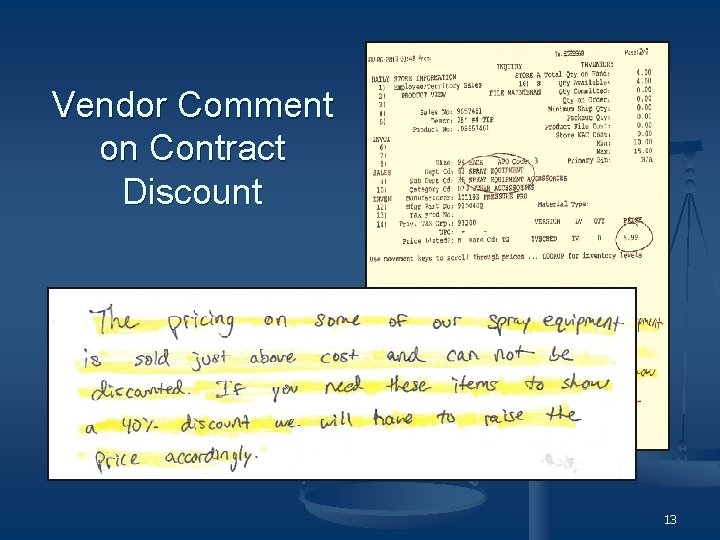 Vendor Comment
on Contract
Discount
INQUIRY
INVENTORY
DAILY STORE INFORMATION
STORE A Total Qty on Hand: 4.00
1) Employee/Territory Sales
Qty Available: 4.00
2) PRODUCT VIEW
Qty Committed: 0.00
FILE MAINTENANCE
Qty on Order: 0.00
3)
Minimum Ship Qty: 0.00
4) Sales No: 9657461
Package Qty: 0.00
5) Descr: 28" #4 TIP
Product File Cost: 0.00
Product No:
Store MAC Cost: 0.00
INVOI
Min: 10.00
6)
Max: 15.00
7) Size: 96 EACH APO Code: 3
Primary Bin: N/A
SALES Dept Cd: 97 SPRAY EQUIPMENT
8)
9) Sub Dept Cd: 36 SPRAY EQUIPMENT ACCESSORIES
10) Category Cd:
INVEN Manufacturer: 111193 PRESSURE PRO
12) Mfgr Part No:
Material Type:
13) Tax Prod No:
14) Priv. Tax Grp.: 93200
VERSION LV QTY PRICE
UPC: - -
Price Listed?: N Ware Cd: TG TVSCHED IV 0 5.99
Use movement keys to scroll through prices ... LOOKUP for inventory levels
The pricing on some of our spray equipment
is sold just above cost and can not be
discounted. If you need these items to show
a 40% discount we will have to raise the
price accordingly.
13